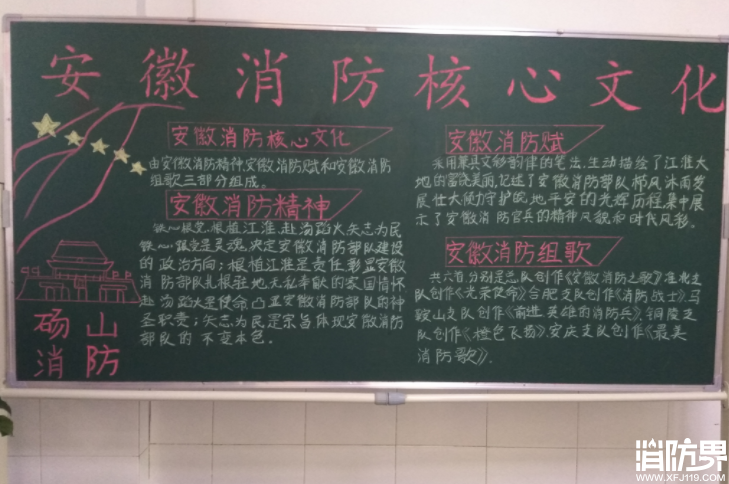 安徽消防核心文化
安徽消防核心文化
由安徽消防精神,安徽消防赋和安徽消防
组歌三部分组成。
安徽消防精神
铁心跟党,根植江淮,赴汤蹈火矢志为民
铁心跟党是灵魂,决定安徽消防部队建设
的政治方向;根植江淮是责任,彰显安徽
消防部队扎根驻地无私奉献的家国情怀
赴汤蹈火是使命,凸显安徽消防部队的神
圣职责;矢志为民是宗旨体现安徽消防
部队的不变本色。
安徽消防赋
采用兼具文彩韵律的笔法,生动描绘了江淮大
地的富饶美丽,记述了安徽消防部队栉风沐雨发
展壮大倾力守护皖地平安的光辉历程集中展
示了安徽消防官兵的精神风貌和时代风彩。
安徽消防组歌
共六首,分别是总队创作《安徽消防之歌》淮北支
队创作《光荣使命》合肥支队创作《消防战士》马
鞍山支队创作《前进英雄的消防兵》,铜陵支
队创作《橙色飞扬》安庆支队创作《最美
消防歌》。
砀山
消防
消防界
WWW.XFJ119.COM